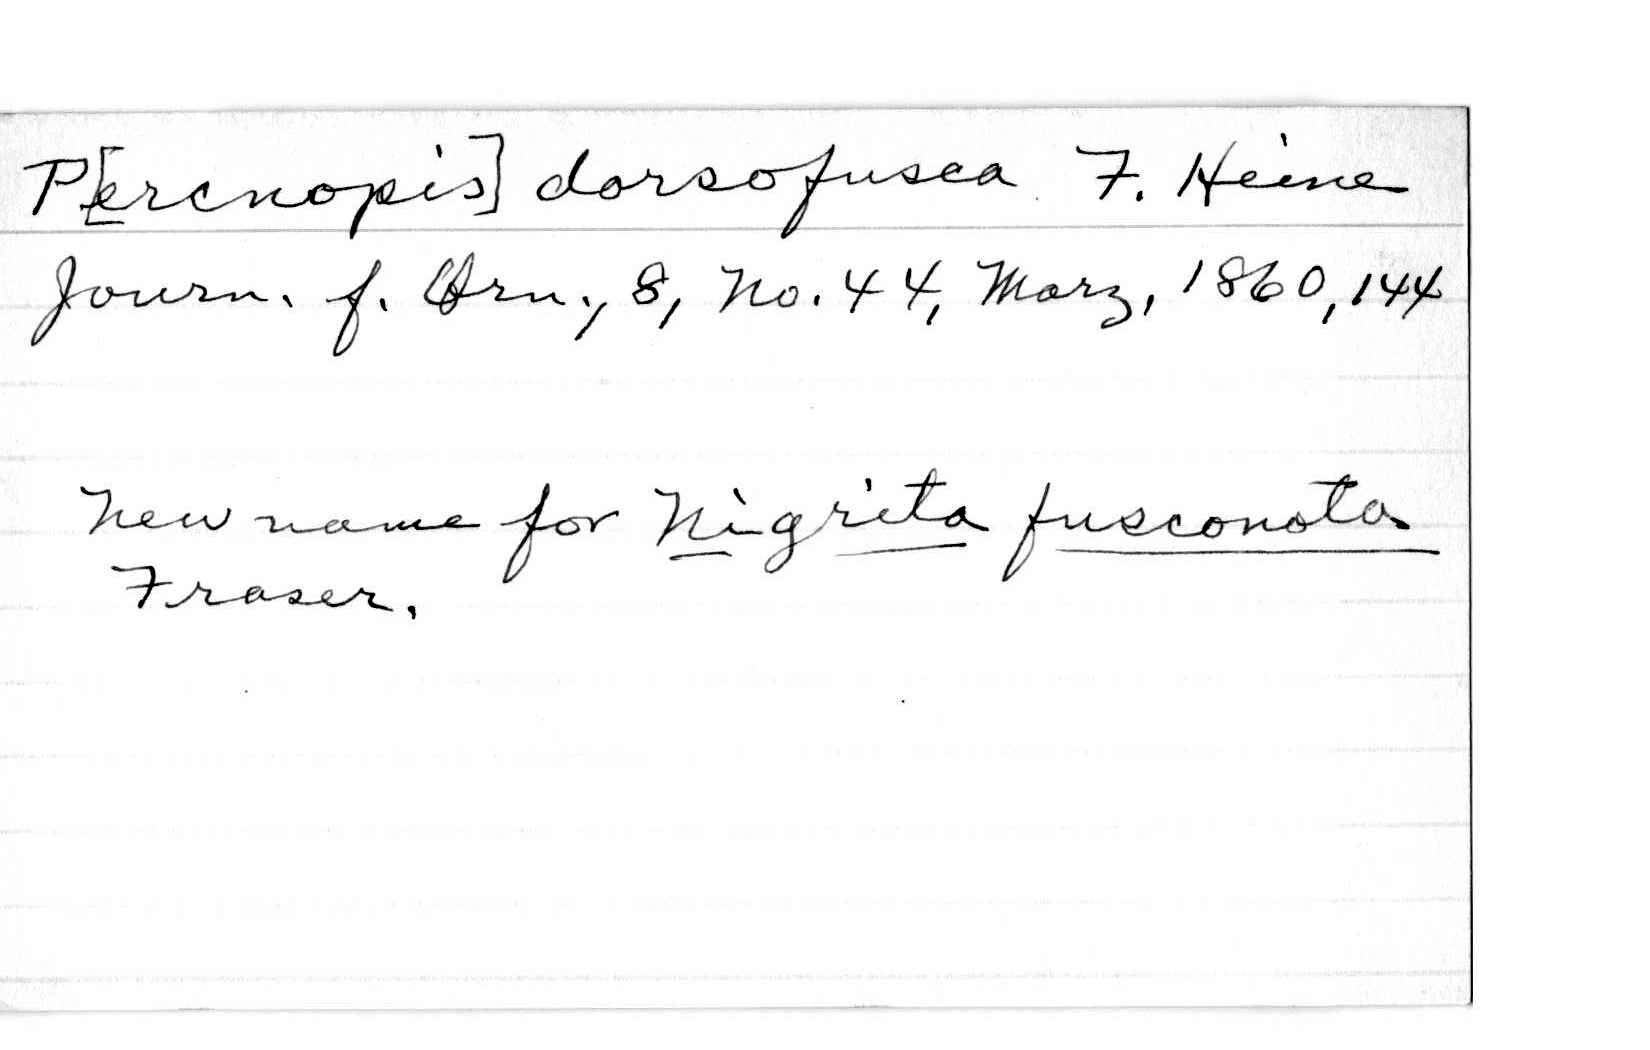 P[ercnopis] dorsofusca F. Heine
Journ. f. Orn., 8, No. 44, Marz, 1860, 144
New name for Nigrita fusconota
Fraser.